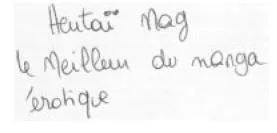 Hentaï Mag
le Meilleur du manga
érotique